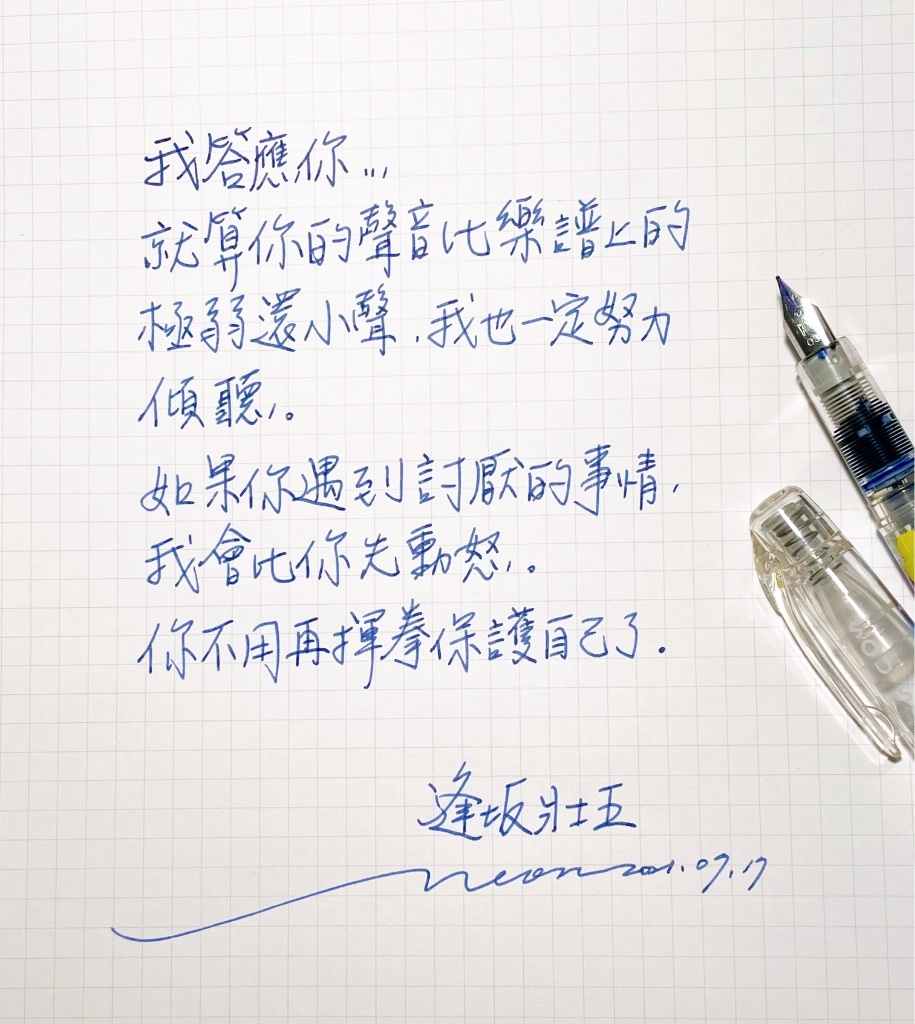 我答應你...
就算你的聲音比樂譜上的
極弱還小聲，我也一定努力
傾聽。
如果你遇到討厭的事情，
我會比你先動怒。
你不用再揮拳保護自己了.
逢坂壯五
neon 2021.09.17